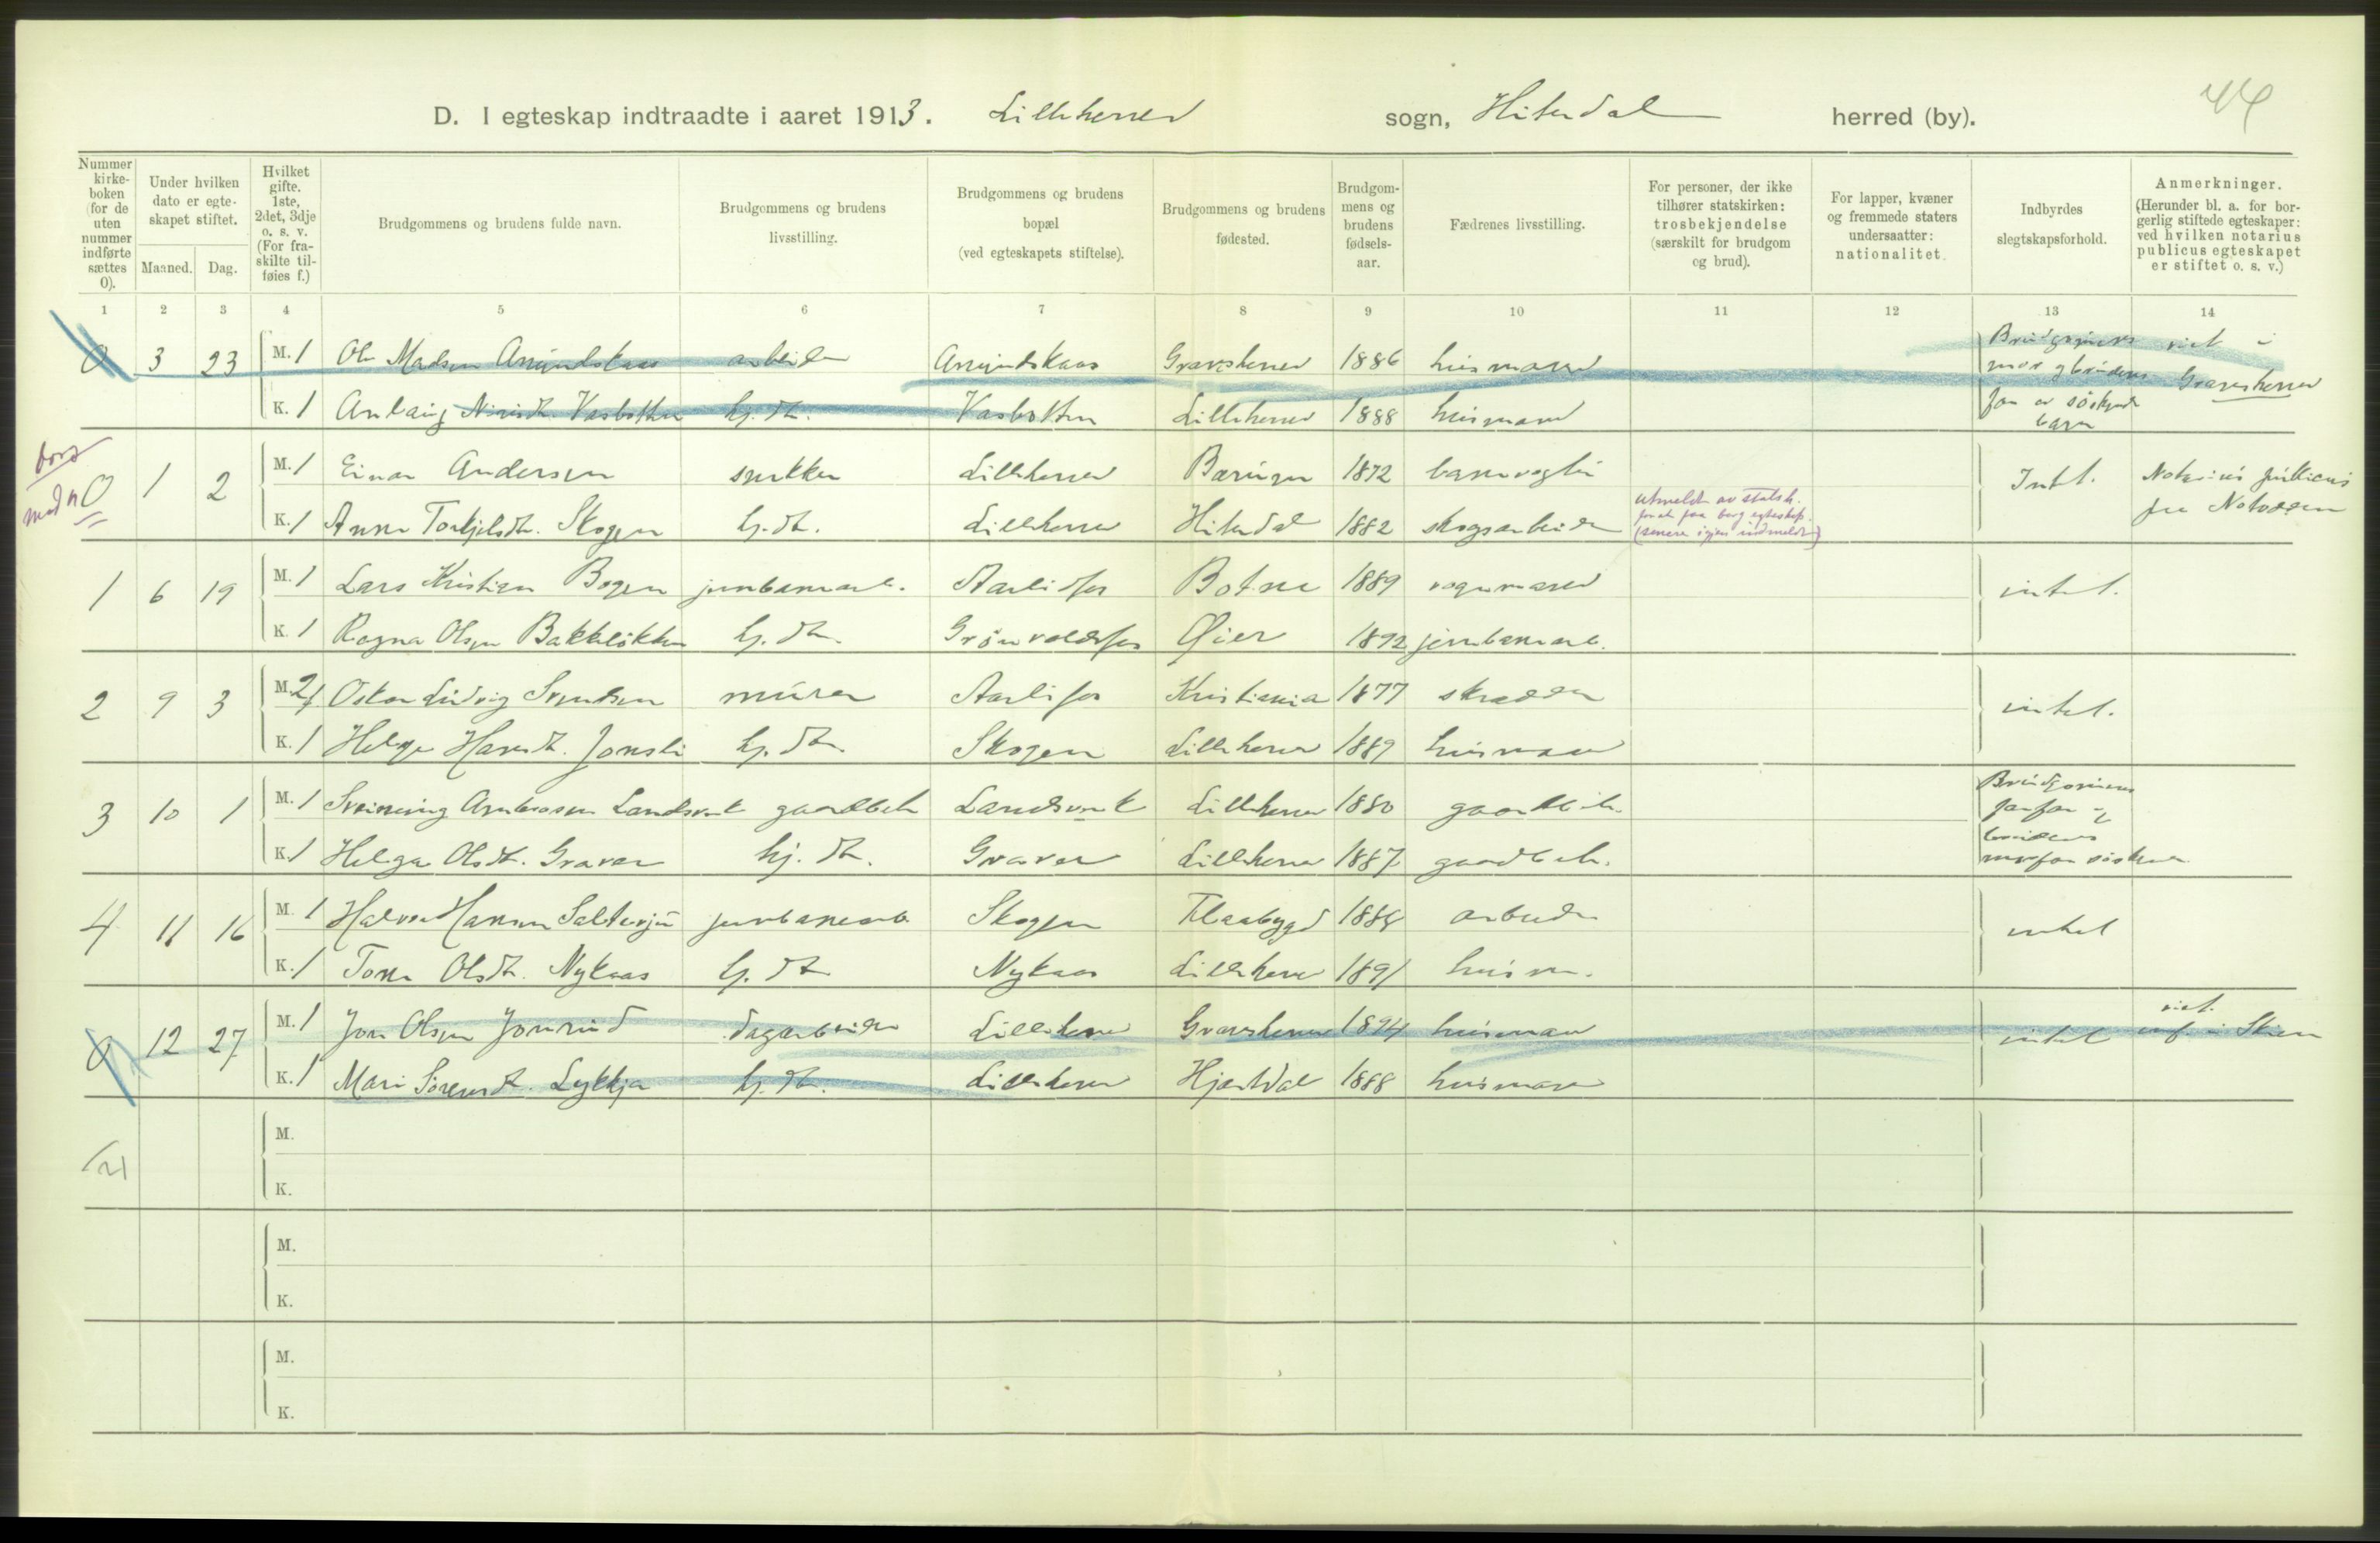 44
D. I egteskap indtraadte i aaret 1913. Lilleherred sogn, Hiterdal herred (by).
Nummer kirkeboken (for de uten nummer indførte sættes 0).
Under hvilken dato er egteskapet stiftet.
Maaned. Dag.
Hvilket gifte. 1ste, 2det, 3dje o. s. v. (For fraskilte tilføies f.)
Brudgommens og brudens fulde navn.
Brudgommens og brudens livsstilling.
Brudgommens og brudens bopæl (ved egteskapets stiftelse).
Brudgommens og brudens fødested.
Brudgommens og brudens fødselsaar.
Fædrenes livsstilling.
For personer, der ikke tilhører statskirken: trosbekjendelse (særskilt for brudgom og brud).
For lapper, kvæner og fremmede staters undersaatter: nationalitet.
Indbyrdes slegtskapsforhold.
Anmerkninger. (Herunder bl. a. for borgerlig stiftede egteskaper: ved hvilken notarius publicus egteskapet er stiftet o. s. v.)
1 2 3 4 5 6 7 8 9 10 11 12 13 14
0 3 23 M. 1 Ole Madsen arbeider Gravsherred 1886 husmand Brudgommens mor og brudens far er søskendebarn viet i Gransherred
K. 1 Vasbotten hj. dt. Vasbotten Lilleherred 1888 husmand
0 1 2 M. 1 Einar Andersen snekker Lilleherred Bærum 1872 banevogter Intet. Notarius publicus fra Notodden
K. 1 Anne Torkjelsdt. Skogen hj. dt. Lilleherred Hiterdal 1882 skogsarbeider utmeldt av statsk. (senere igjen indmeldt)
1 6 19 M. 1 Lars Kristian Bogen jernbanearb. Aarlifos Botne 1889 vognmand intet.
K. 1 Ragna Olsen Bakkeløkken hj. dt. Grønvoldsfos Øier 1892 jernbanearb.
2 9 3 M. 2f Oskar Ludvig Svendsen murer Aarlifos Kristiania 1877 skrædder intet.
K. 1 Helge Hansdt. Jonsli hj. dt. Skogen Lilleherred 1889 husmand
3 10 1 M. 1 Sveinung Landsverk gaardbr. Landsverk Lilleherred 1880 Brudgommens farfar og brudens morfar søskende
K. 1 Helga Olsdt. Graver hj. dt. Graver Lilleherred 1887
4 11 16 M. 1 Halvor Hansen jernbanearb Skogen Flaabygd 1888 arbeider intet
K. 1 Tone Olsdt. Nykaas hj. dt Nykaas Lilleherred 1891 husm.
0 12 27 M. 1 Jon Olsen Jonsrud dagarbeider Lilleherred Gransherred 1894 husmand intet viet i Skien
K. 1 Mari Lykkja hj. dt. Lilleherred Hjartdal 1888 husmand
M.
K.
M.
K.
M.
K.